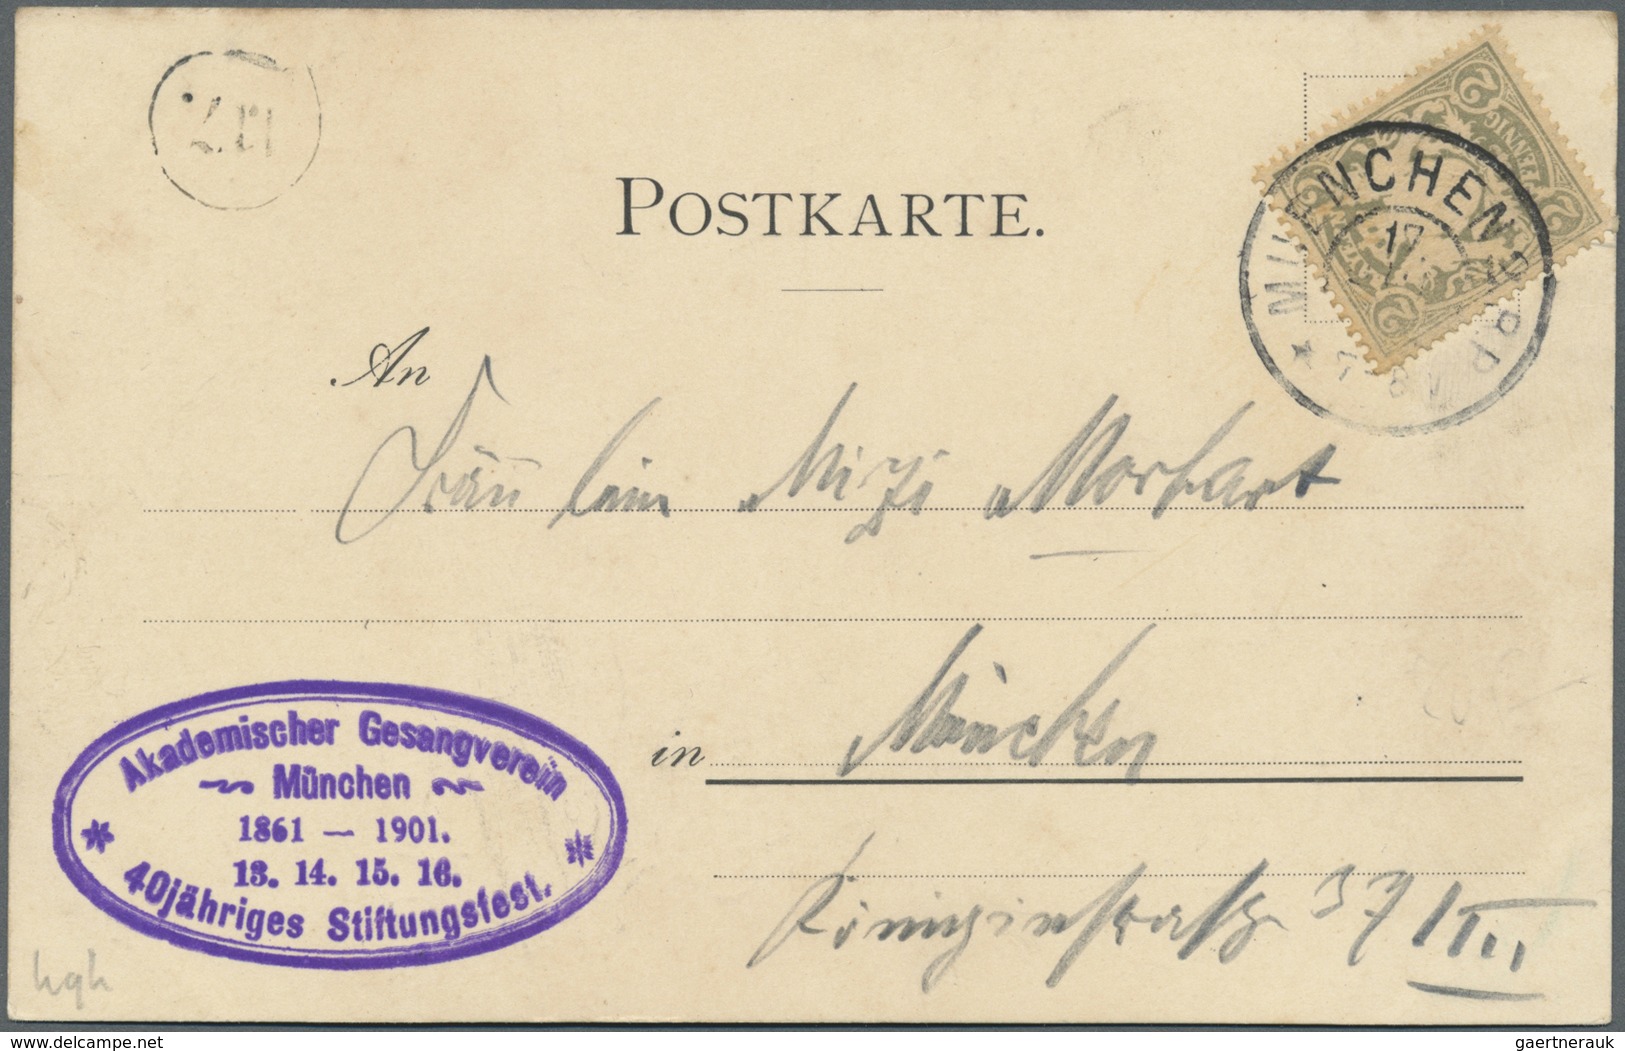 17.
POSTKARTE.
2
PFENNIG
MUENCHEN
17
BAYERN
2
7-8 V
An
Fräulein Mizi Morhart
in München
Königinstraße 37/III
Akademischer Gesangverein
München
1861 — 1901.
13. 14. 15. 16.
40jähriges Stiftungsfest.
hgh
www.delcampe.net
gaertnerauk